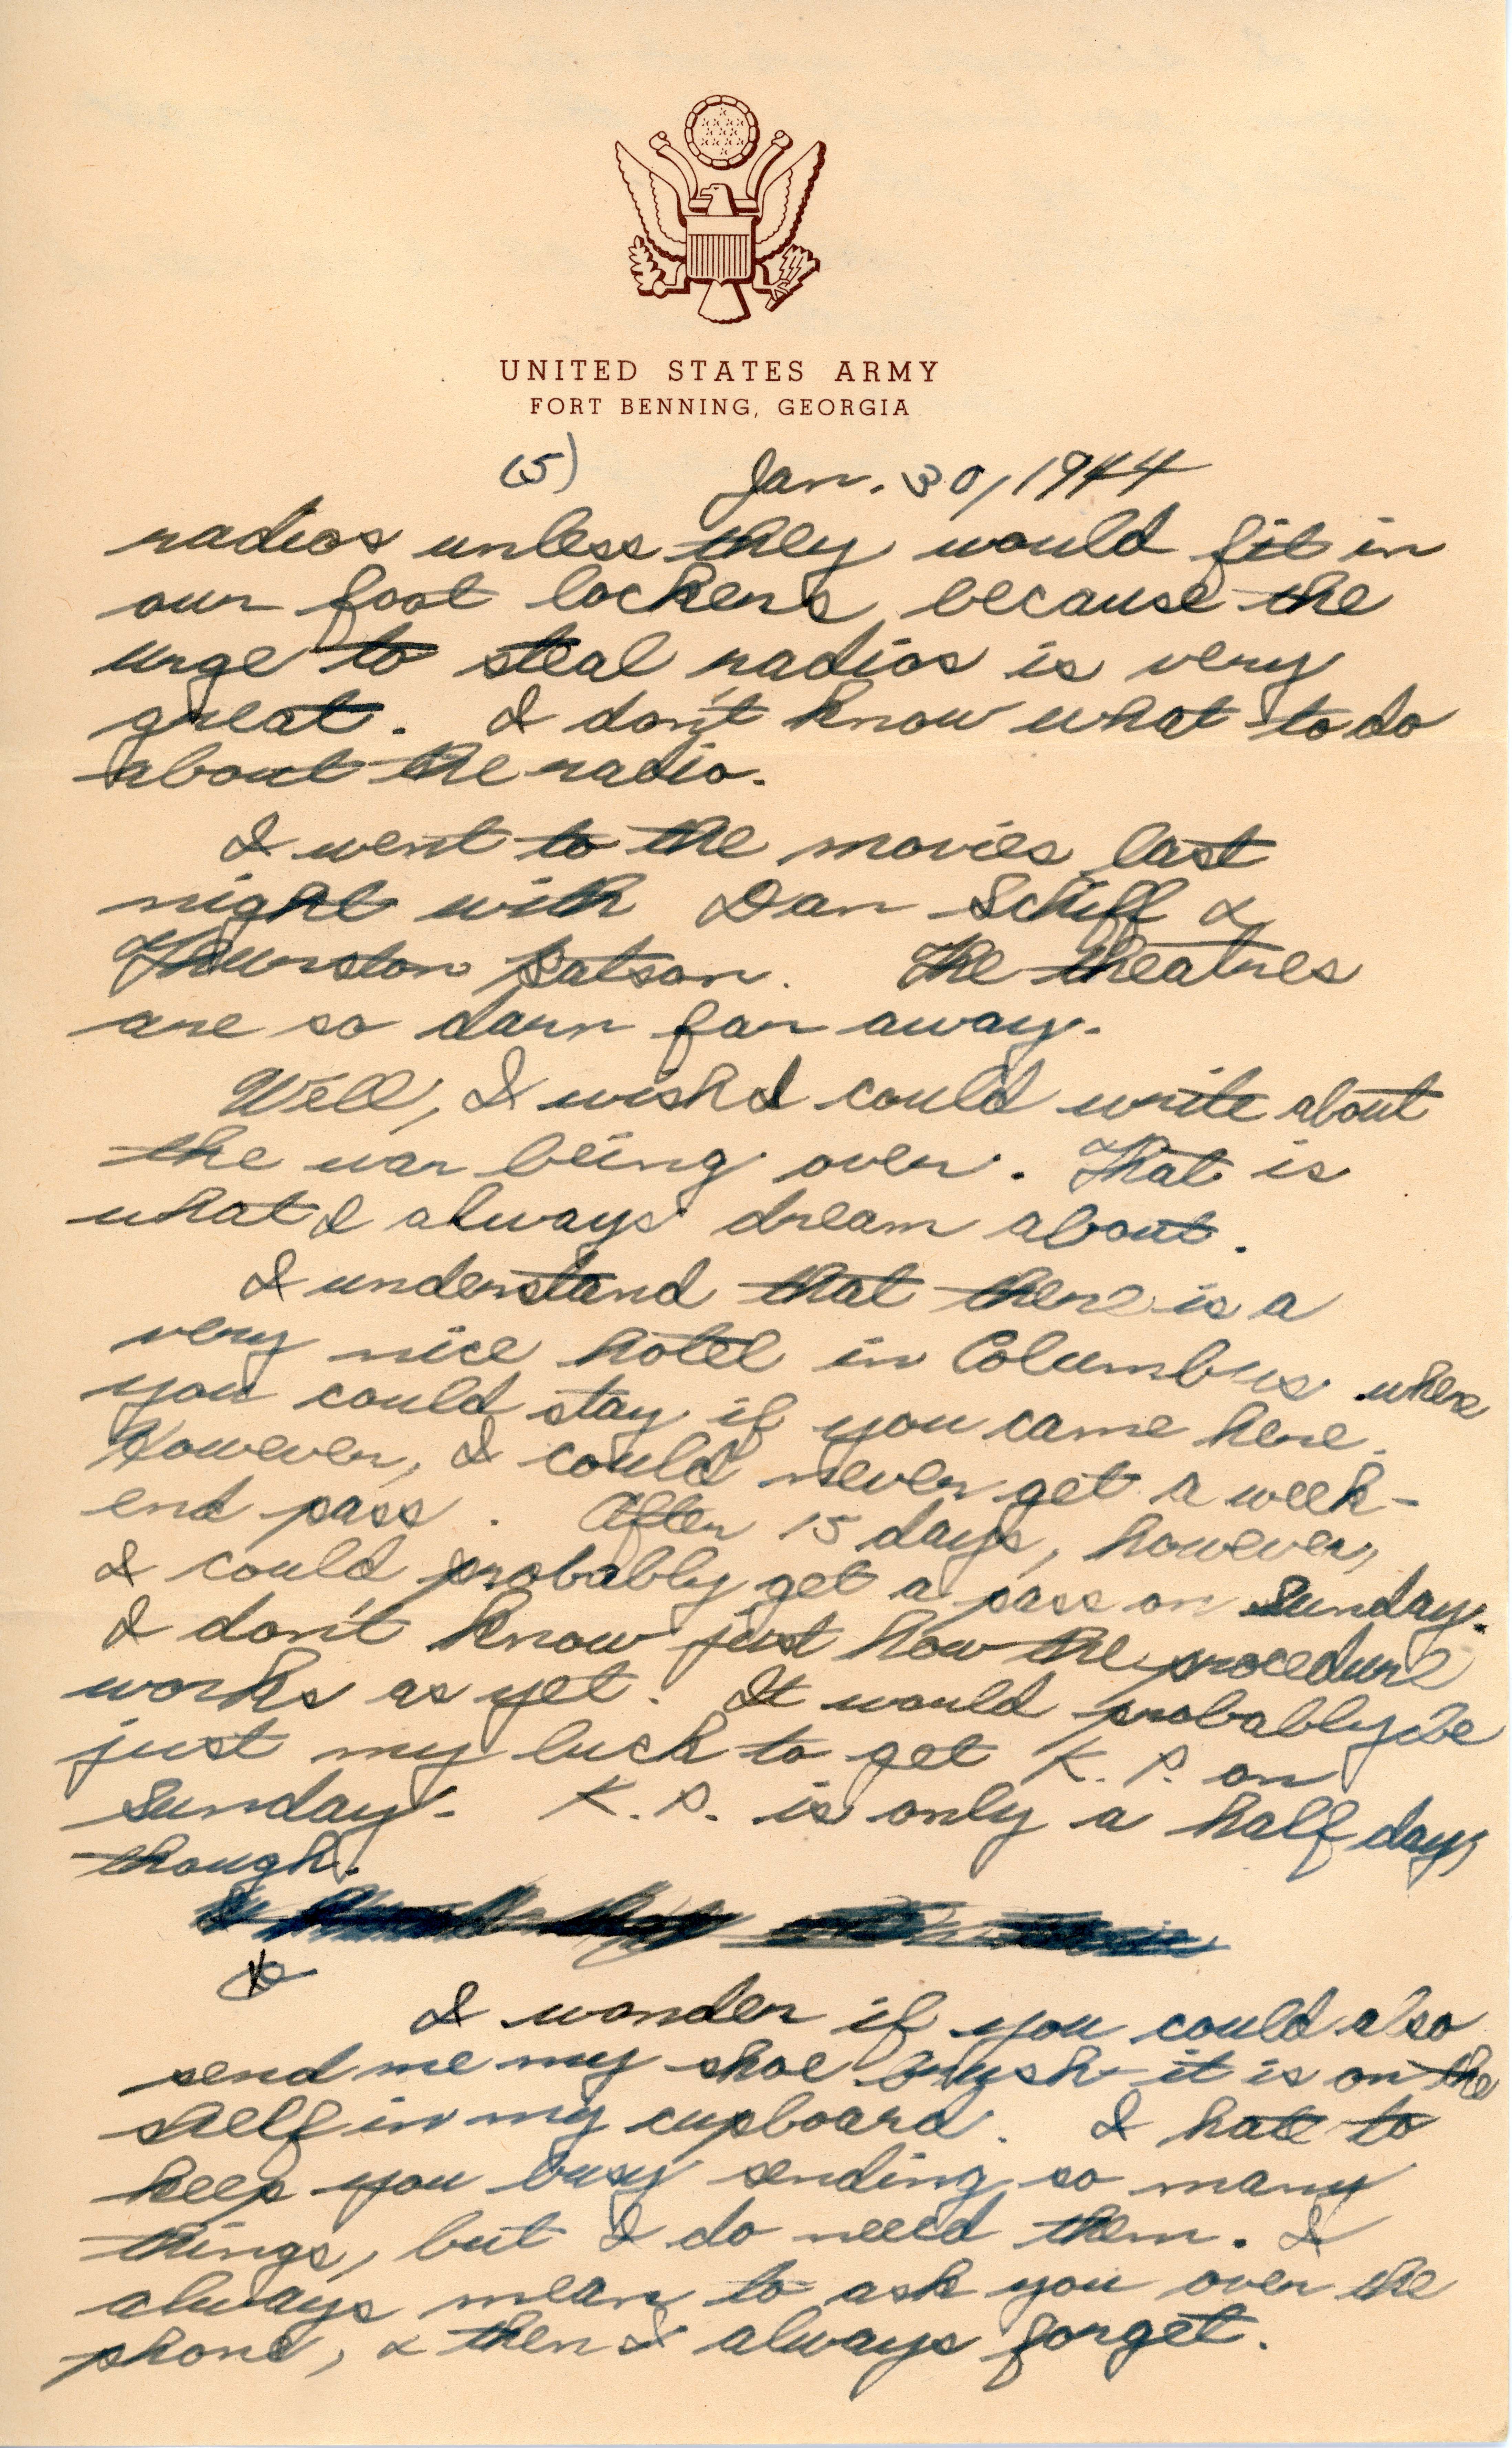 UNITED STATES ARMY
FORT BENNING, GEORGIA
(5) Jan. 30, 1944
radios unless they would fit in
our foot lockers, because the
urge to steal radios is very
great. I don't know what to do
about the radio.
I went to the movies last
night with Dan Schiff &
Thurston. The theatres
are so darn far away.
Well, I wish I could write about
the war being over. That is
what I always dream about.
I understand that there is a
very nice hotel in Columbus where
you could stay if you came here.
However, I could never get a week-
end pass. After 15 days, however,
I could probably get a pass on Sunday.
I don't know just how the procedure
works as yet. It would probably be
just my luck to get K. P. on
Sunday. K. P. is only a half day,
though.
I wonder if you could also
send me my shoe brush - it is on the
shelf in my cupboard. I hate to
keep you busy sending so many
things, but I do need them. I
always mean to ask you over the
phone, & then I always forget.